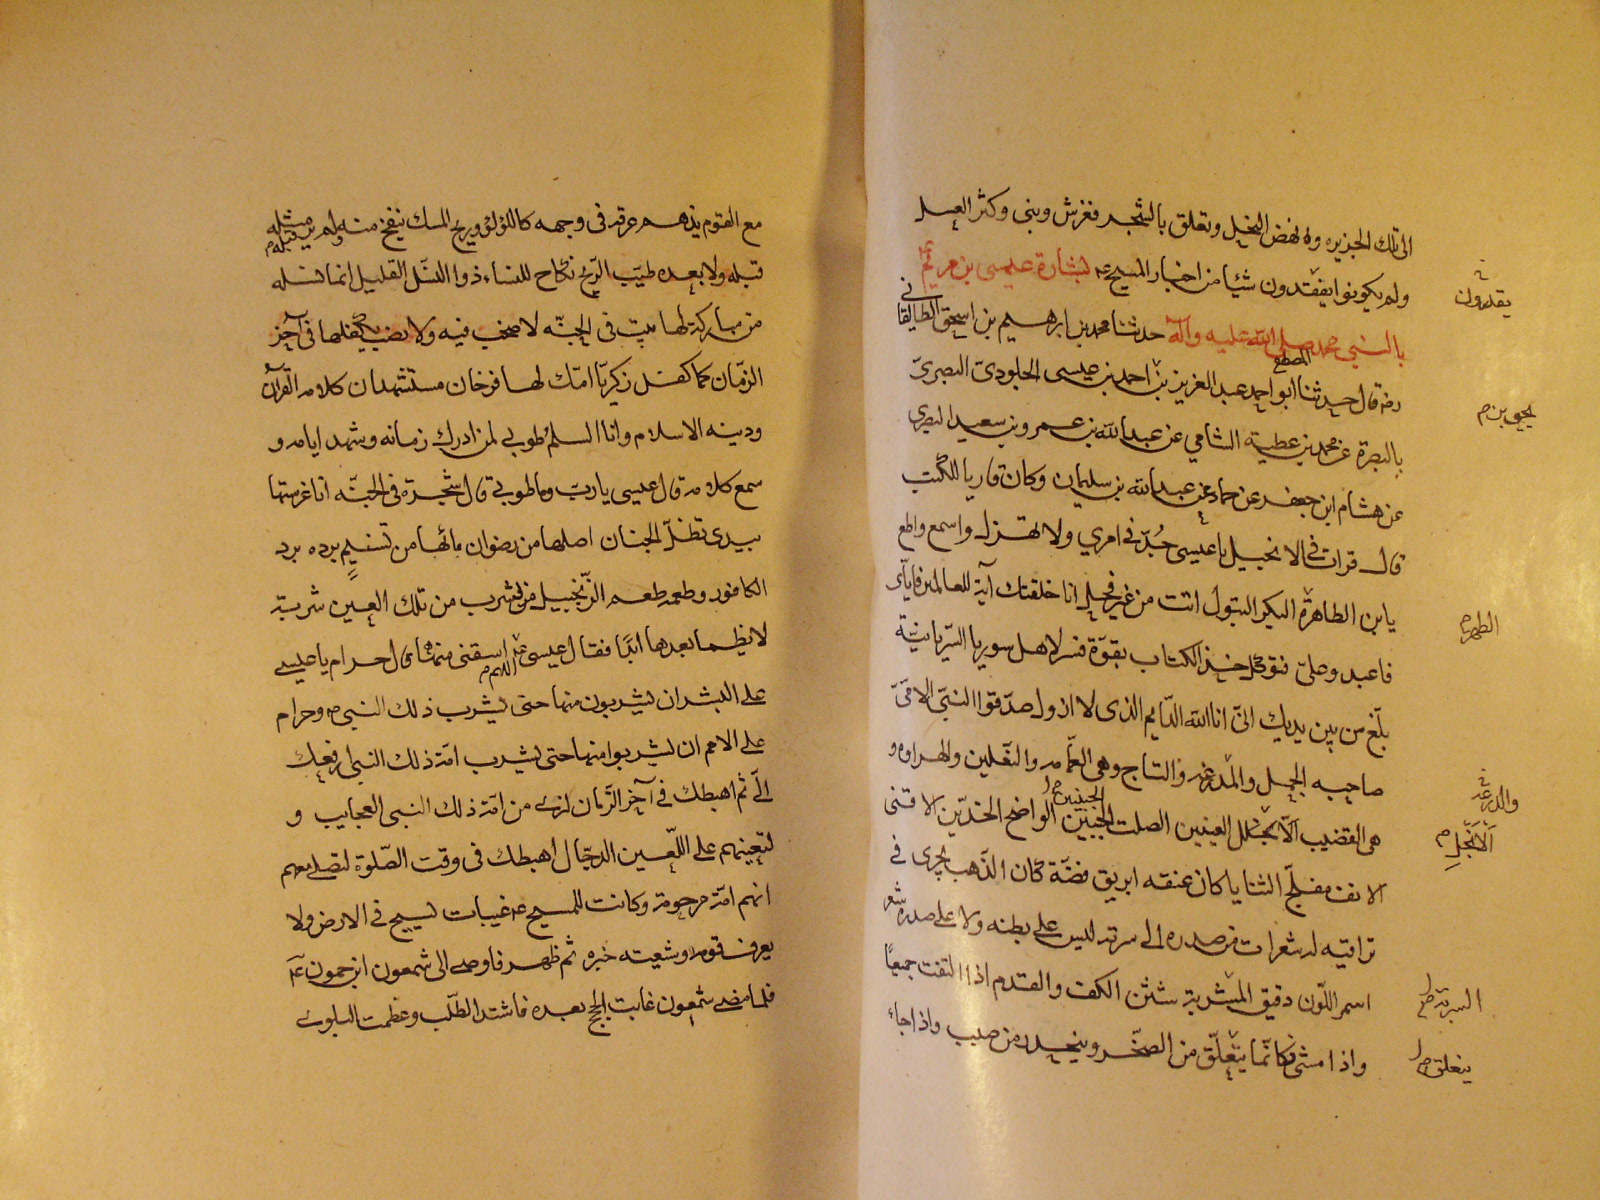 الى تلك الجزيره ولا نهض النحل وتعلق بالشجر فغرش وبنى وكثر العسل
ولم يكونوا يفقدون شيئا من اخبار المسيح ع بشارة عيسى بن مريم ع
يقدرون
بالنبي محمد صلى الله عليه وآله حدثنا محمد بن ابرهيم بن اسحق الطالقانى
رضه قال حدثنا ابو احمد عبد العزيز بن احمد بن عيسى الجلودى البصرى
يحيى بن م
بالبصرة عن محمد بن عطية الشامي عن عبد الله بن عمرو بن سعيد البصرى
عن هشام ابن جعفر عن حماد عن عبد الله بن سليمان وكان قاريا للكتب
قال قرات في الانجيل يا عيسى جُدّ في امري ولا تهزل واسمع واطع
يا بن الطاهرة البكر البتول انت من غير فحل انا خلقتك آية للعالمين فاياّى
الطهره
فاعبد وعلىّ فتوكل خذ الكتاب بقوّة فسر لاهل سوريا السّريانيّة
بلّغ من بين يديك انّى انا الله الدّايم الذى لا ازول صدّقوا النبّى الامّىّ
صاحب الجمل والمدرعه والتاج وهى العمّامه والنّعلين والهراوه و
والدرعه
هى القضيب الانجل العينين الصلت الجبين الواضح الخدّين الاقنى
الجبين
اَلْاَنْجَلِ م
الانف مفلّج الثنايا كان عنقه ابريق فضّة كان الذّهب يجرى في
تراقيه له شعرات من صدره الى سرته ليس على بطنه ولا على صدره شعر
اسمر اللّون دقيق المشربة شثن الكف والقدم اذا التفت جميعًا
السربة
واذا مشى فكانّما يتعلّق من الصخّر وينحدر من صبب واذا جاء
ينقلع
مع القوم يذهم عرقه فى وجهه كاللؤلؤ وريح المسك ينفخ منه ولم ير مثله
قبله م
قبله ولا بعده طيّب الرّيح نكّاح للنساء ذوا النّسل القليل انما نسله
من مباركة لها بيت فى الجنّه لا صخب فيه ولا نصب يكفلها فى آخر
الزمّان كما كفل زكريّا امّك لها فرخان مستشهدان كلامه القرآن
ودينه الاسلام وانا السلم طوبى لمن ادرك زمانه وشهد ايامه و
سمع كلامه قال عيسى يا ربّ وما طوبى قال شجرة فى الجنّه انا غرستها
بيدى تظلّ الجنان اصلها من رضوان مائها من تسنيمٍ برده برد
الكافور وطعمه طعم الزّنجبيل من يشرب من تلك العين شربة
لا يظما بعدها ابدًا فقال عيسى ع اللهم اسقنى منها قال حرام يا عيسى
على البشر ان يشربون منها حتى يشرب ذلك النبى ص وحرام
على الامم ان يشربوا منها حتى يشرب امّة ذلك النبى ارفعك
الىّ ثم اهبطك فى آخر الزّمان لترى من امّة ذلك النبى العجايب و
لتعينهم على اللّعين الدجّال اهبطك فى وقت الصّلوة لتصلى معهم
انهم امّة مرحومة وكانت للمسيح ع غيبات يسيح فى الارض ولا
يعرف قومه وشيعته خبره ثم ظهر فاوصى الى شمعون ابن حمون ع
فلما مضى شمعون غابت الحجج بعده فاشتد الطّلب وعظمت البلوى